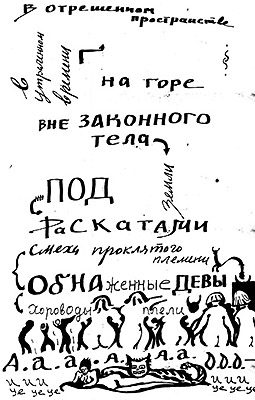 В отрешенном
пространстве
в
утраченном
времени
на горе
вне ЗАКОННОГО
тела
земли
ПОД
РаСКАТАМИ
Смеха проклятого
племени
ОБНАженные ДЕВЫ
Хороводы плели
А.а.а...А.А.а.а.О.О.О.-
И И И И И И
уе уе уе уе уе уе